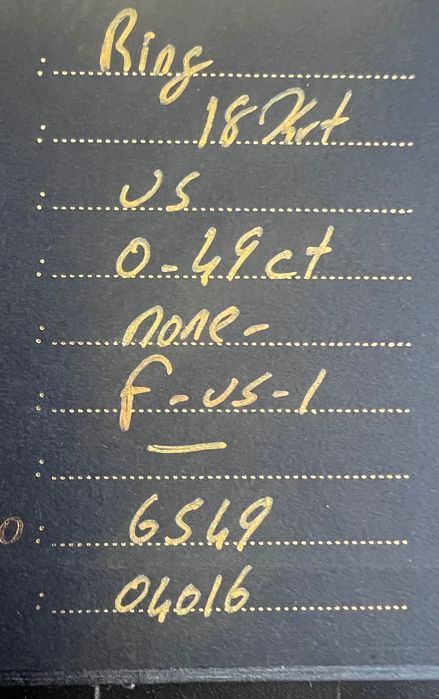 : Ring
: 18 Krt
: VS
: 0-49 ct
: none-
: F-VS-1
: —
O : 6549
: 04016